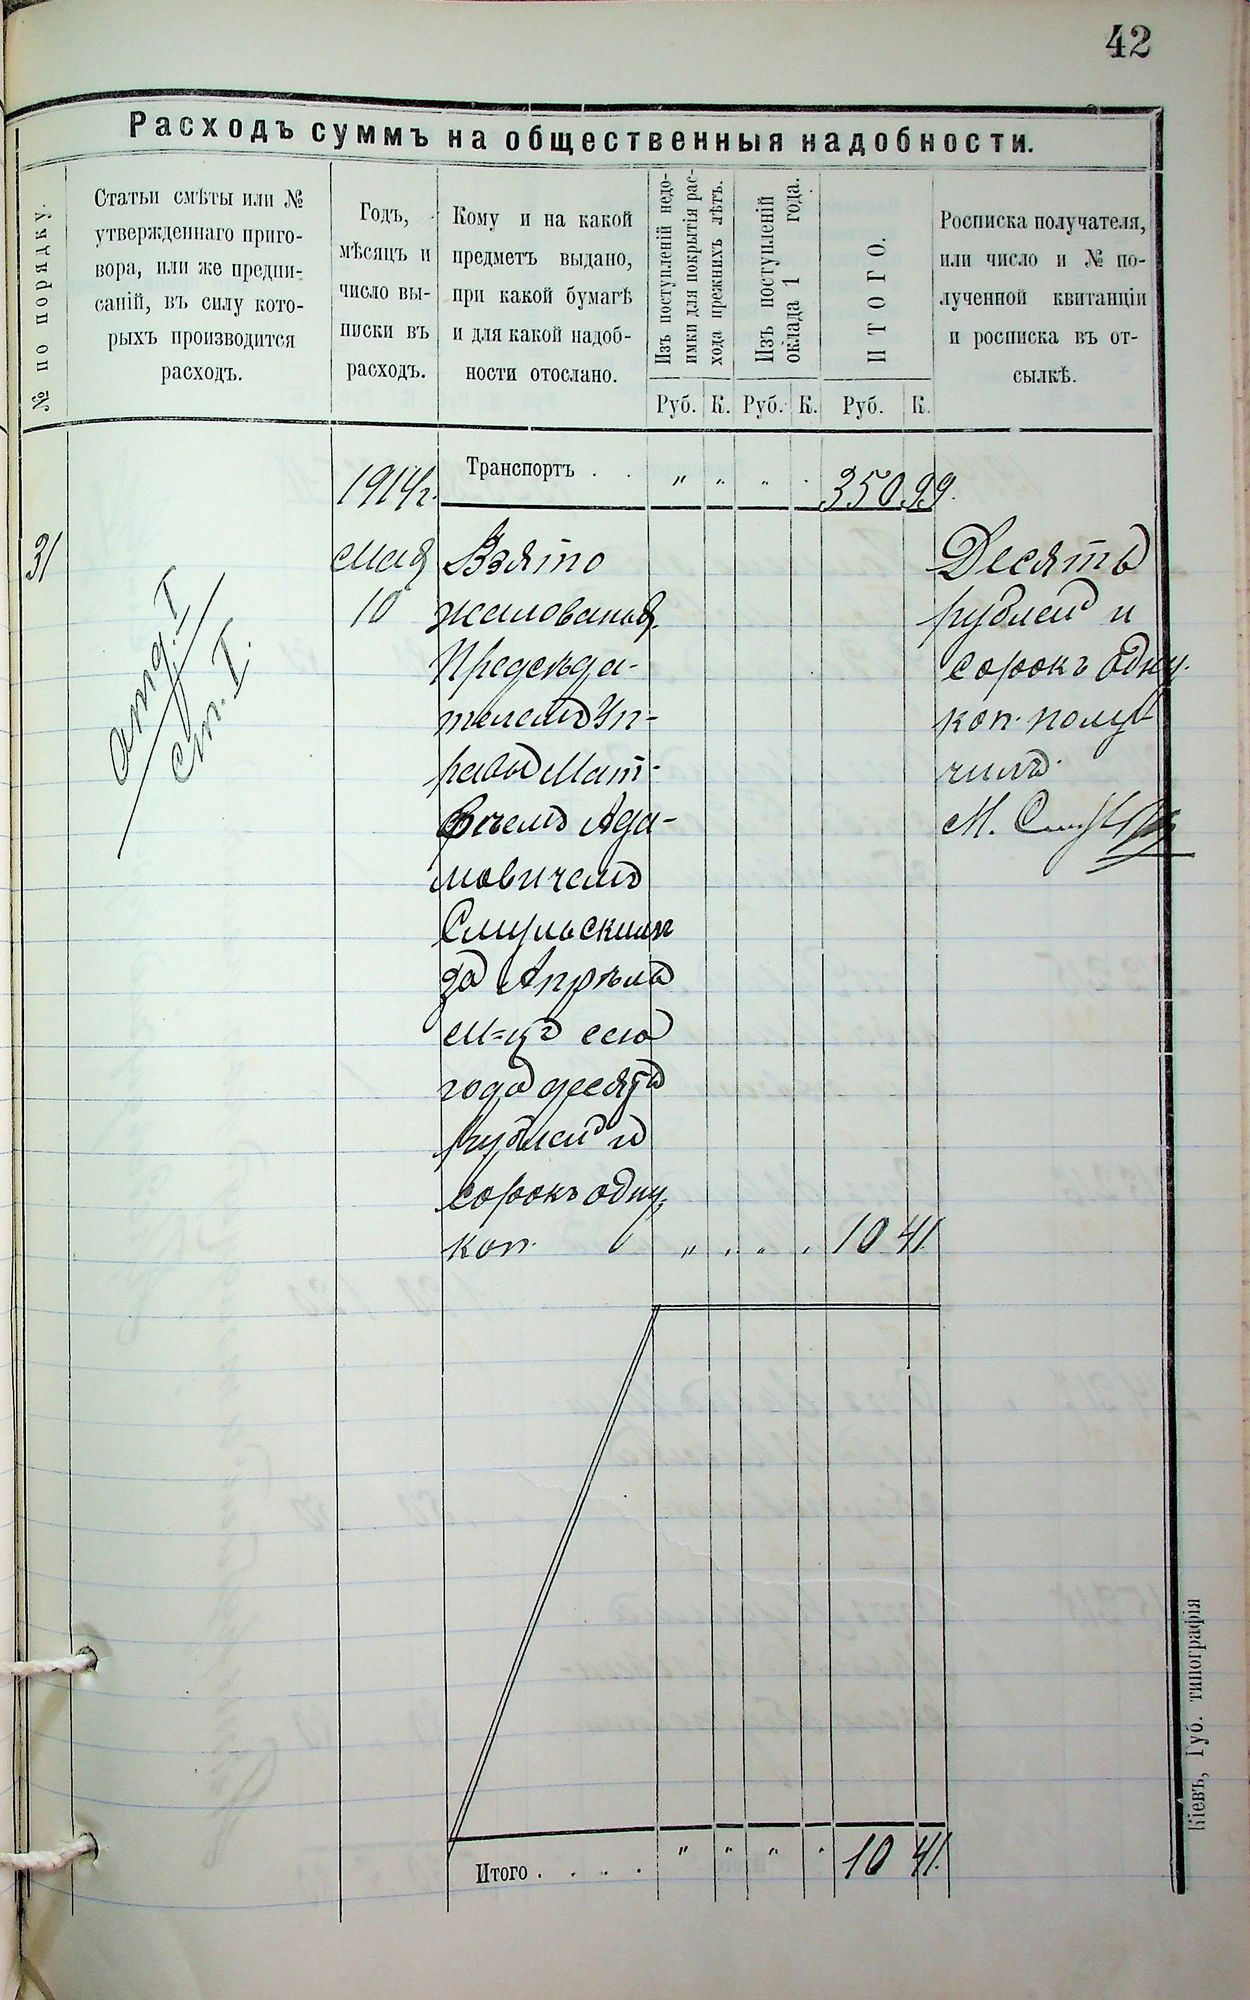 42
Расходъ суммъ на общественныя надобности.
№ по порядку.
Статьи смѣты или №
утвержденнаго приго-
вора, или же предпи-
саній, въ силу кото-
рыхъ производится
расходъ.
Годъ,
мѣсяцъ и
число вы-
писки въ
расходъ.
Кому и на какой
предметъ выдано,
при какой бумагѣ
и для какой надоб-
ности отослано.
Изъ поступленій недо-
имки для покрытія рас-
хода прежнихъ лѣтъ.
Изъ поступленій
оклада 1 года.
ИТОГО.
Росписка получателя,
или число и № по-
лученной квитанціи
и росписка въ от-
сылкѣ.
Руб. К. Руб. К. Руб. К.
1914 г. Транспортъ . . " " " " 350 99.
31 Мая Взято Десять
10 жалованья рублей и
Предсѣда- сорокъ одну
телемъ Уп- коп. полу-
равы Мат- чилъ.
вѣемъ Ада- М.
мовичемъ
Смульскимъ
за Апрѣль
м-цъ сего
года десять
рублей и
сорокъ одну
коп. " " " " 10 41
отд. I
ст. I.
Итого . . . . " " " " 10 41.
Кіевъ, Губ. типографія